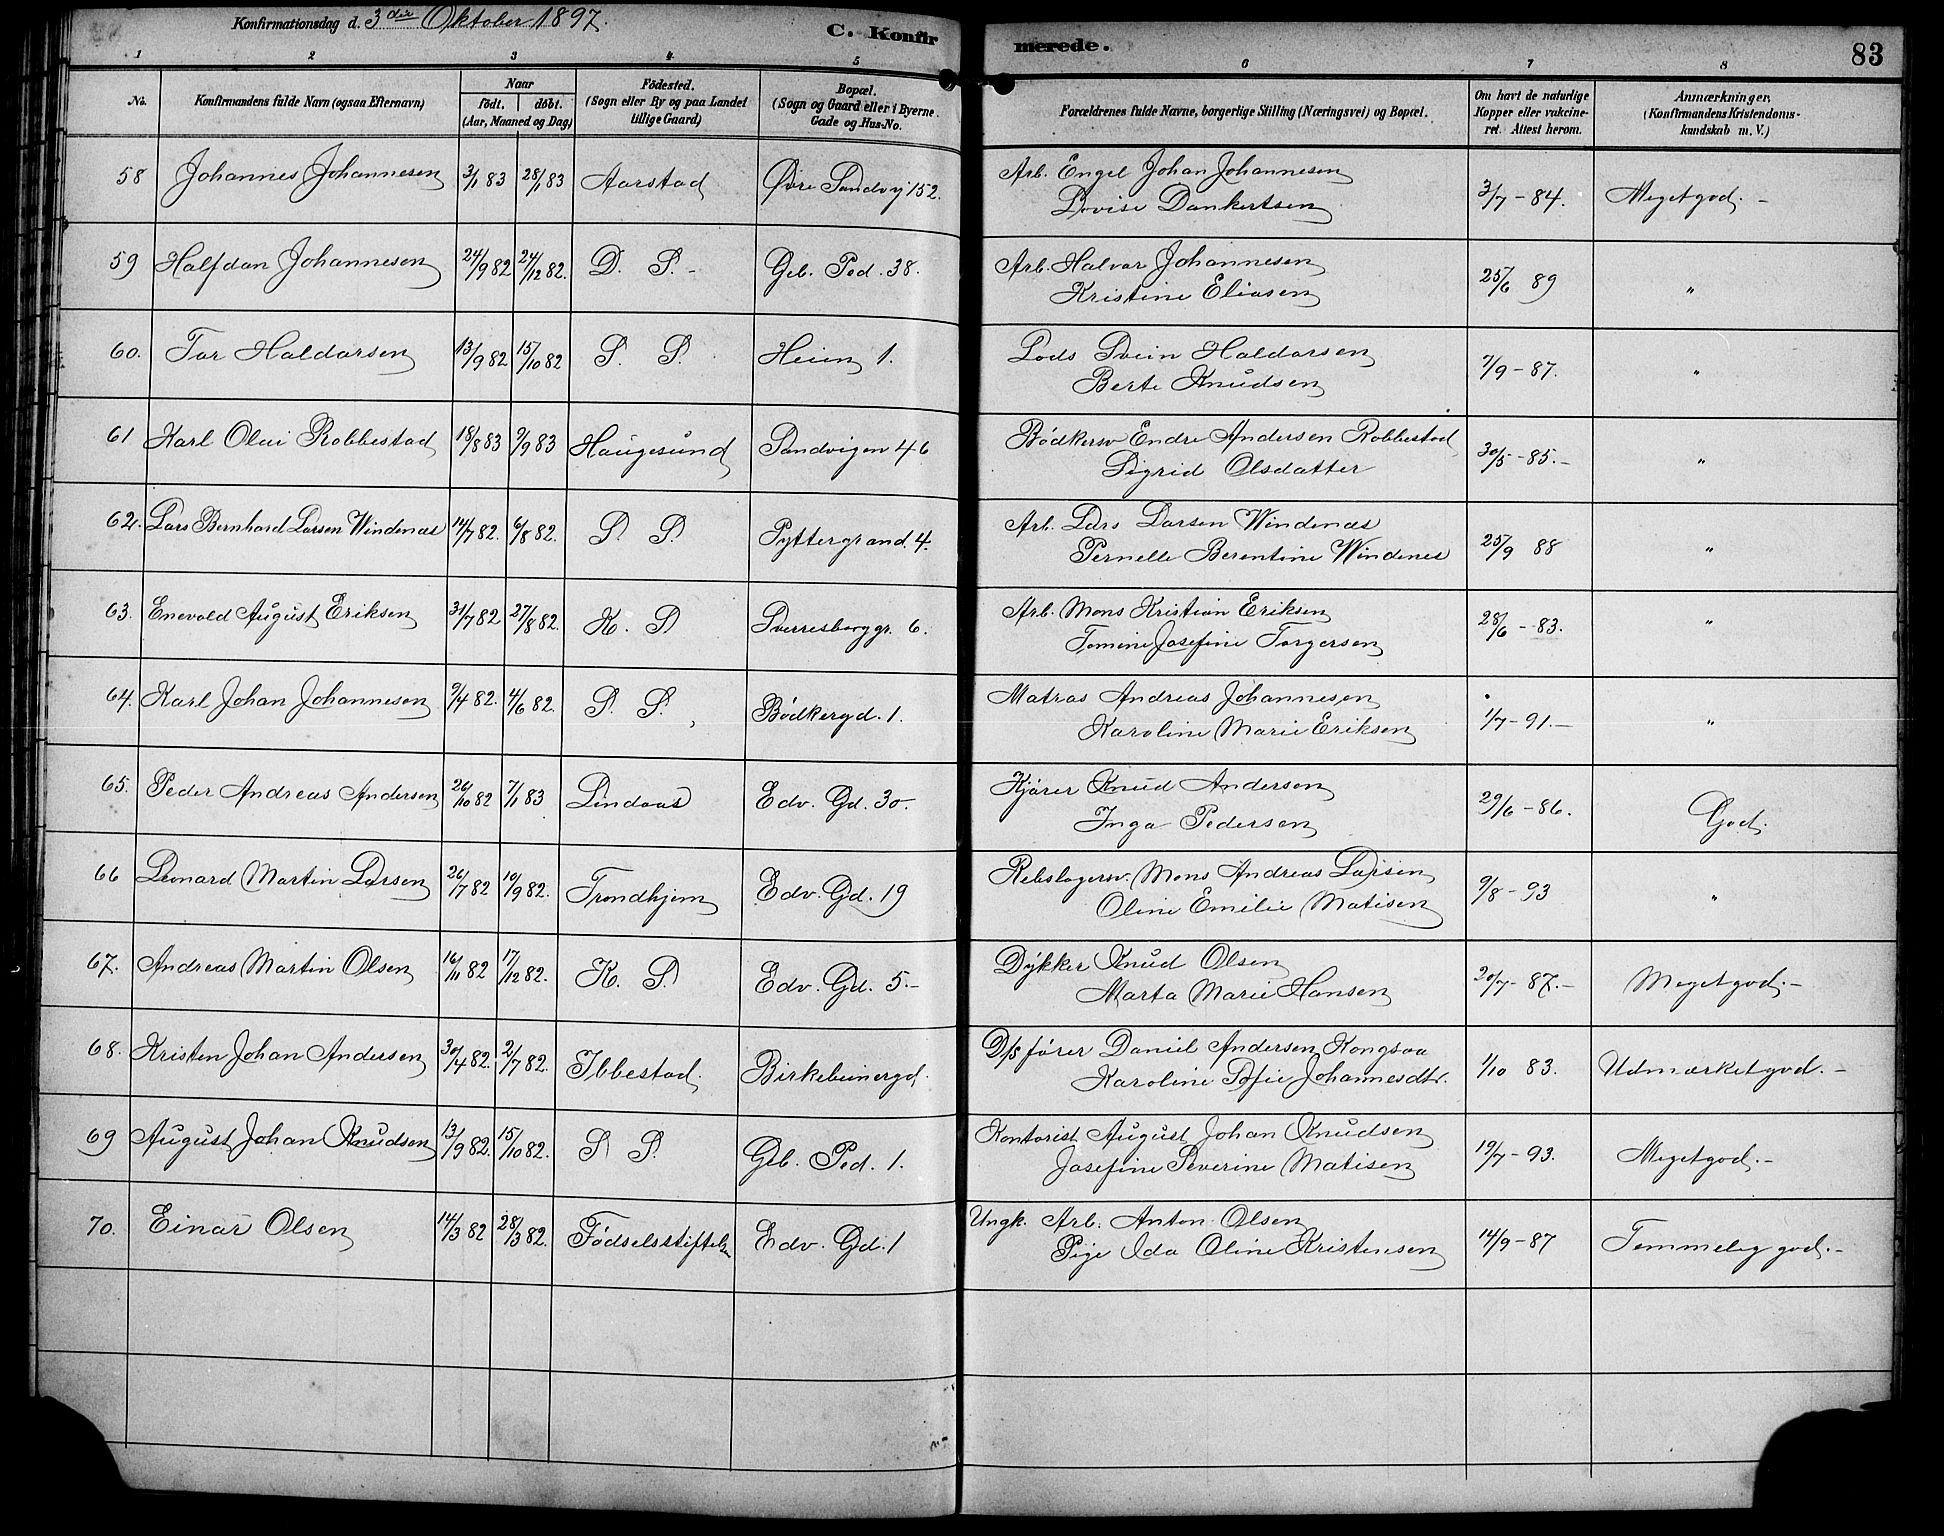 Konfirmationsdag d. 3die Oktober 1897.
C. Konfirmerede.
83
1 2 3 4 5 6 7 8
No. Konfirmandens fulde Navn (ogsaa Efternavn) Naar født. døbt. (Aar, Maaned og Dag) Fødested. (Sogn eller By og paa Landet tillige Gaard) Bopæl. (Sogn og Gaard eller i Byerne Gade og Hus-No. Forældrenes fulde Navne, borgerlige Stilling (Næringsvei) og Bopæl. Om havt de naturlige Kopper eller vakcineret. Attest herom. Anmærkninger. (Konfirmandens Kristendomskundskab m. V.)
58 Johannes Johannesen 3/1 83 28/1 83 Aarstad Øvre Sandvj 152. Arb. Engel Johan Johannesen 3/7 - 84. Meget god. -
Lovise Dankertsen
59 Halfdan Johannesen 24/9 82 24/12 82. D. S. - Geb. Ped. 38. Arb. Halvor Johannesen 25/6 89 "
Kristine Eliasen
60. Tor Haldorsen 13/9 82 15/10 82 S. S. Heien 1. Lods Svein Haldorsen 7/9 - 87. "
Berte Knudsen
61 Karl Olai Robbestad 18/8 83 9/9 83 Haugesund Sandvigen 46 Bødkersv Endre Andersen Robbestad 30/5 - 85. - "
Sigrid Olsdatter
62. Lars Bernhard Larsen Windenæs 14/7 82. 6/8 82. S. S. Pyttergrand. 4. Arb. Lars Larsen Windenæs 25/9 88 "
Pernelle Berentine Windenes
63. Enevold August Eriksen 31/7 82 27/8 82. K. S Sverresborggr. 6. Arb. Mons Kristian Eriksen 28/6 - 83. "
Tomine Josefine Torgersen
64. Karl Johan Johannesen 9/4 82. 4/6 82 S. S. Bødkergd. 1. Matros Andreas Johannesen 1/7 - 91. - "
Karoline Marie Eriksen
65. Peder Andreas Andersen 26/10 82 7/1 83 Lindaas Edv. Gd. 30. Kjører Knud Andersen 29/6 - 86. God.
Inga Pedersen
66 Leonard Martin Larsen 26/7 82 10/9 82. Trondhjem Edv. Gd. 19 Rebslagersv. Mons Andreas Larsen 9/8 - 93 "
Oline Emilie Matisen
67. Andreas Martin Olsen 16/11 82 17/12 82. K. S. Edv. Gd. 5. - Dykker Knud Olsen 20/7 - 87. - Meget god. -
Marta Marie Hansen
68. Kristen Johan Andersen 30/4 82. 2/7 82. Ibbestad. Birkebeinergd. D/s fører Daniel Andersen Kongsvaa 1/10 83. Udmærket god. -
Karoline Sofie Johannesdtr.
69 August Johan Knudsen 13/9 82. 15/10 82. S S. Geb. Ped. 1. Kontorist August Johan Knudsen 19/7 - 93. Meget god. -
Josefine Severine Matisen
70. Einar Olsen 14/3 82 28/3 82. Fødselsstiftelsen Edv. Gd. 1 Ungk. Arb. Anton Olsen 14/9 - 87 Temmelig god. -
Pige Ida Oline Kristensen